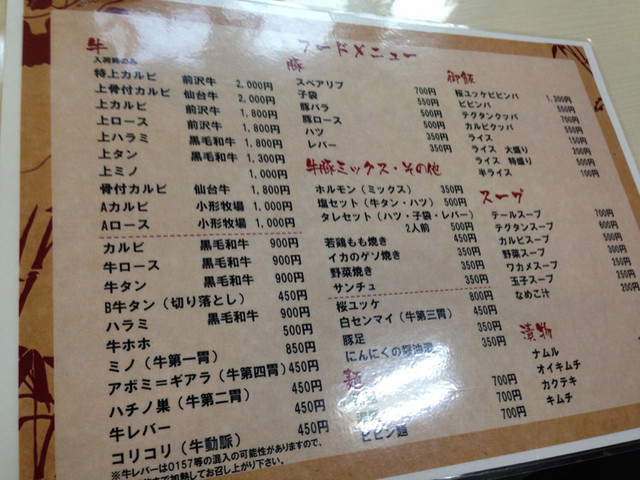 フードメニュー
牛
入荷時のみ
特上カルビ 前沢牛 2,000円
上骨付カルビ 仙台牛 2,000円
上カルビ 前沢牛 1,800円
上ロース 前沢牛 1,800円
上ハラミ 黒毛和牛 1,800円
上タン 黒毛和牛 1,300円
上ミノ 1,000円
骨付カルビ 仙台牛 1,800円
Aカルビ 小形牧場 1,000円
Aロース 小形牧場 1,000円
カルビ 黒毛和牛 900円
牛ロース 黒毛和牛 900円
牛タン 黒毛和牛 900円
B牛タン(切り落とし) 450円
ハラミ 黒毛和牛 900円
牛ホホ 500円
ミノ(牛第一胃) 850円
アボミ=ギアラ(牛第四胃) 450円
ハチノ巣(牛第二胃) 450円
牛レバー 450円
コリコリ(牛動脈) 450円
※牛レバーはO157等の混入の可能性がありますので、
で加熱してお召し上がり下さい。
豚
スペアリブ 700円
子袋 550円
豚バラ 500円
豚ロース 500円
ハツ 350円
レバー 350円
牛豚ミックス・その他
ホルモン(ミックス) 350円
塩セット(牛タン・ハツ) 500円
タレセット(ハツ・子袋・レバー)
2人前 500円
若鶏もも焼き 450円
イカのゲソ焼き 350円
野菜焼き 350円
サンチュ 350円
桜ユッケ 800円
白センマイ(牛第三胃) 450円
豚足 350円
にんにくの醤油 350円
麺
700円
700円
ビビン麺 700円
御飯
桜ユッケビビンバ 1,200円
ビビンバ
テグタンクッパ 700円
カルビクッパ
ライス 150円
ライス 大盛り 200円
ライス 特盛り
半ライス 100円
スープ
テールスープ 700円
テグタンスープ 600円
カルビスープ 500円
野菜スープ
ワカメスープ
玉子スープ 250円
なめこ汁 200円
漬物
ナムル
オイキムチ
カクテキ
キムチ